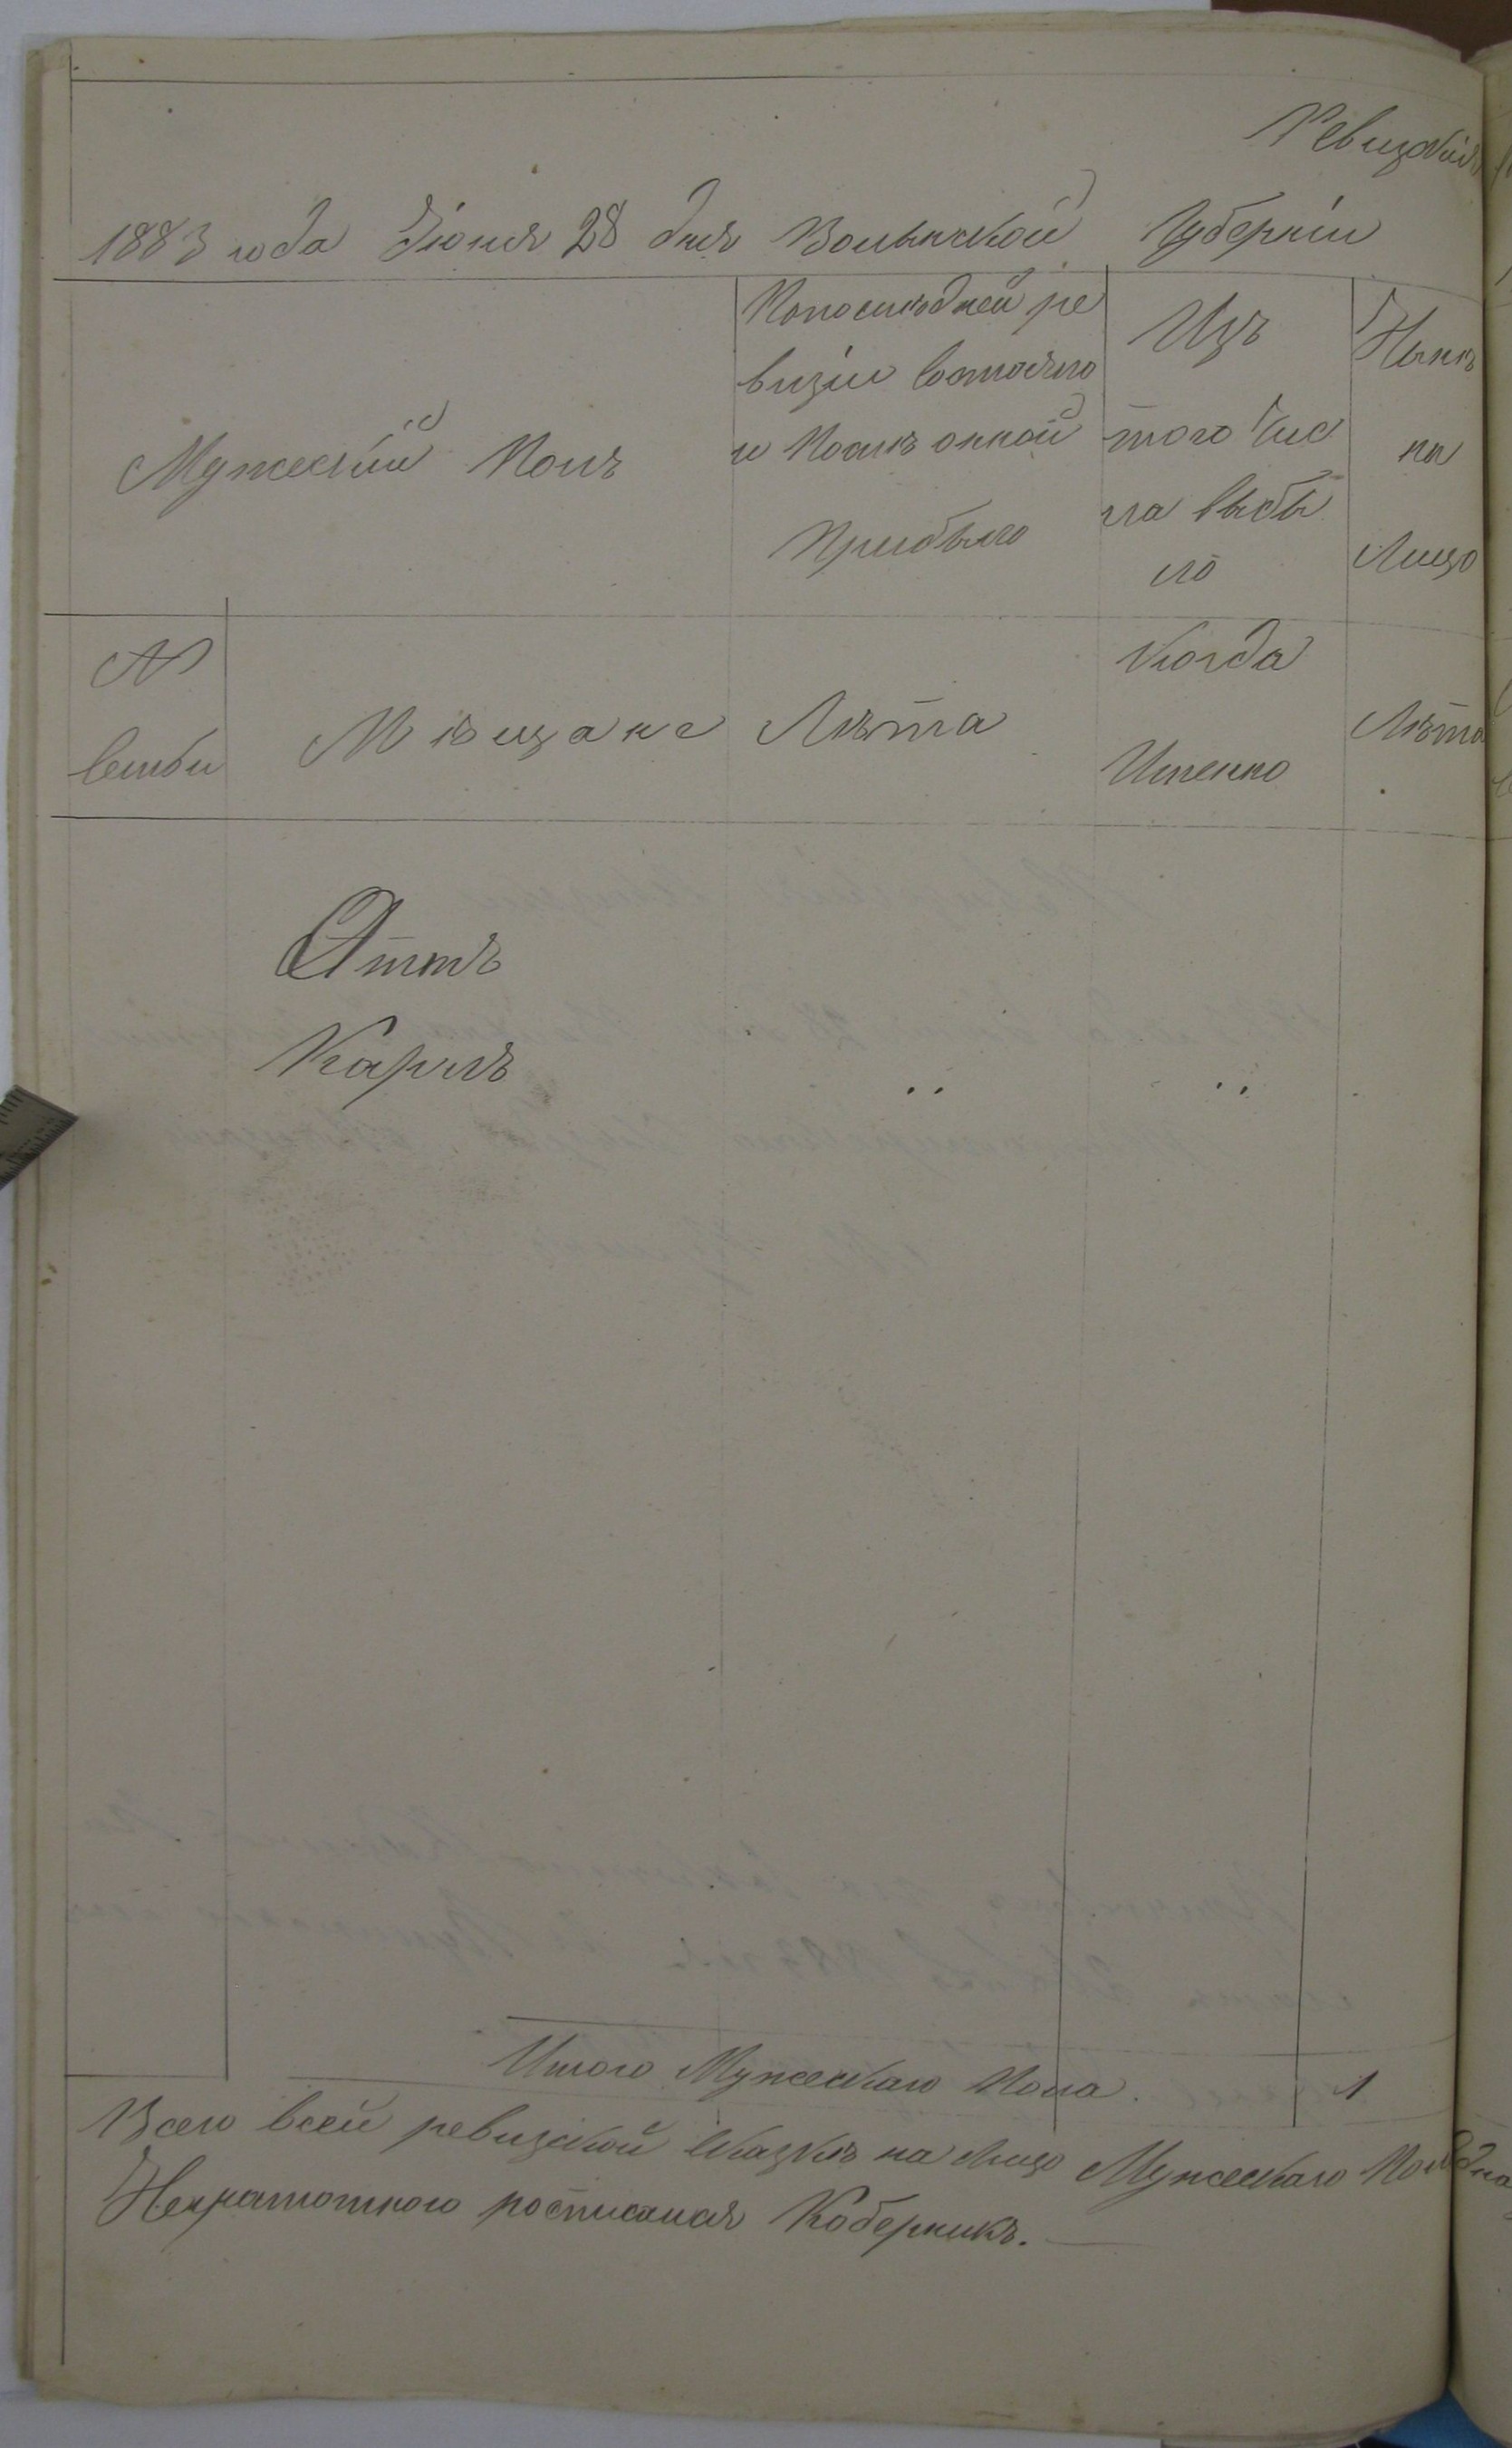 Ревизская
1883 года Іюня 28 дня Волынской Губерніи
Мужескій Полъ
Попослѣдней ре
визіи состояло
и Послѣ онной
Прибыло
Изъ
того Чис
ла выбы
ло
Нынѣ
на
Лицо
№
семьи
Мѣщане
Лѣта
Когда
Именно
Лѣта
Оттъ
Карлъ
Итого Мужескаго Пола. 1
Всего всей ревизской сказкѣ на лицо Мужескаго Пола одна
Неграмотного росписался Коберникъ.